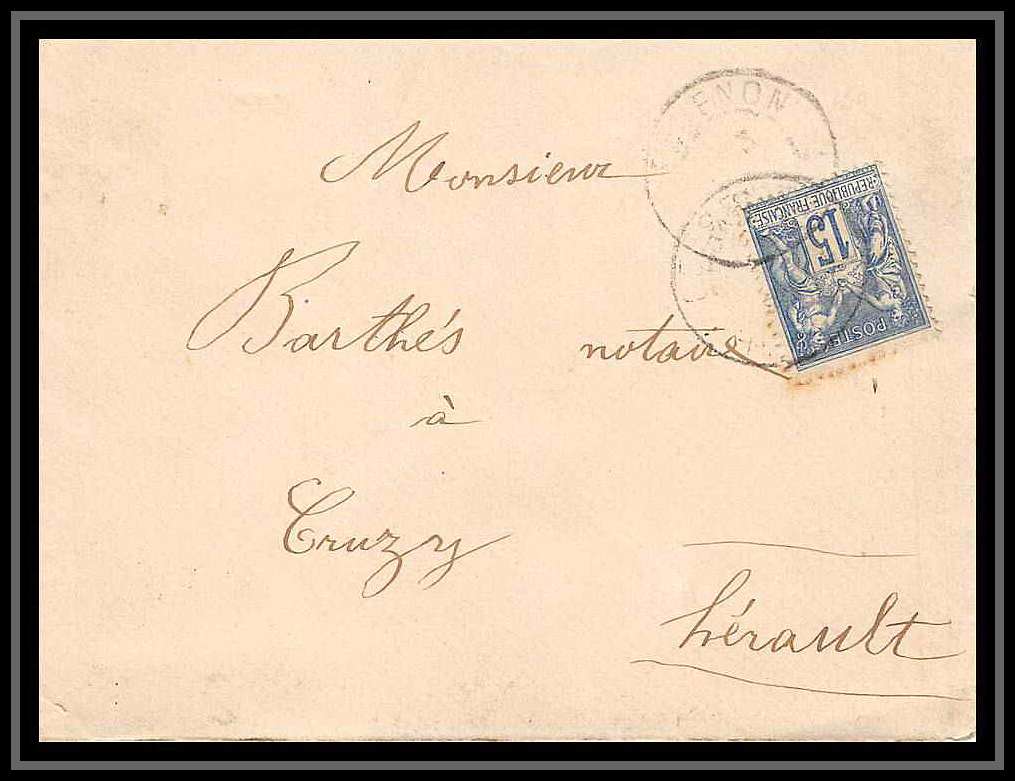 Monsieur
Barthés notaire
à
Cruzy
hérault
REPUBLIQUE FRANCAISE
15
POSTES